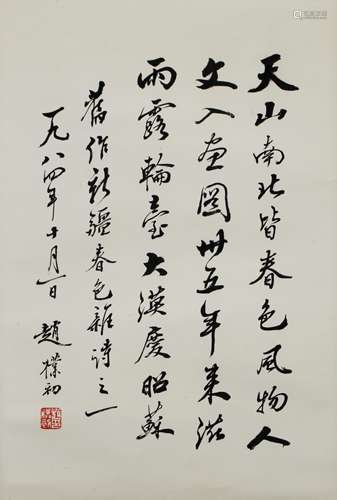 天山南北皆春色風物人
文入畫圖卅五年來滋
雨露輪臺大漠慶昭蘇
舊作新疆春色雜詩之一
一九八四年十月一日 趙樸初